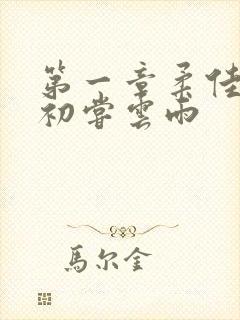 第一章柔佳
初嘗雲雨
馬尔金